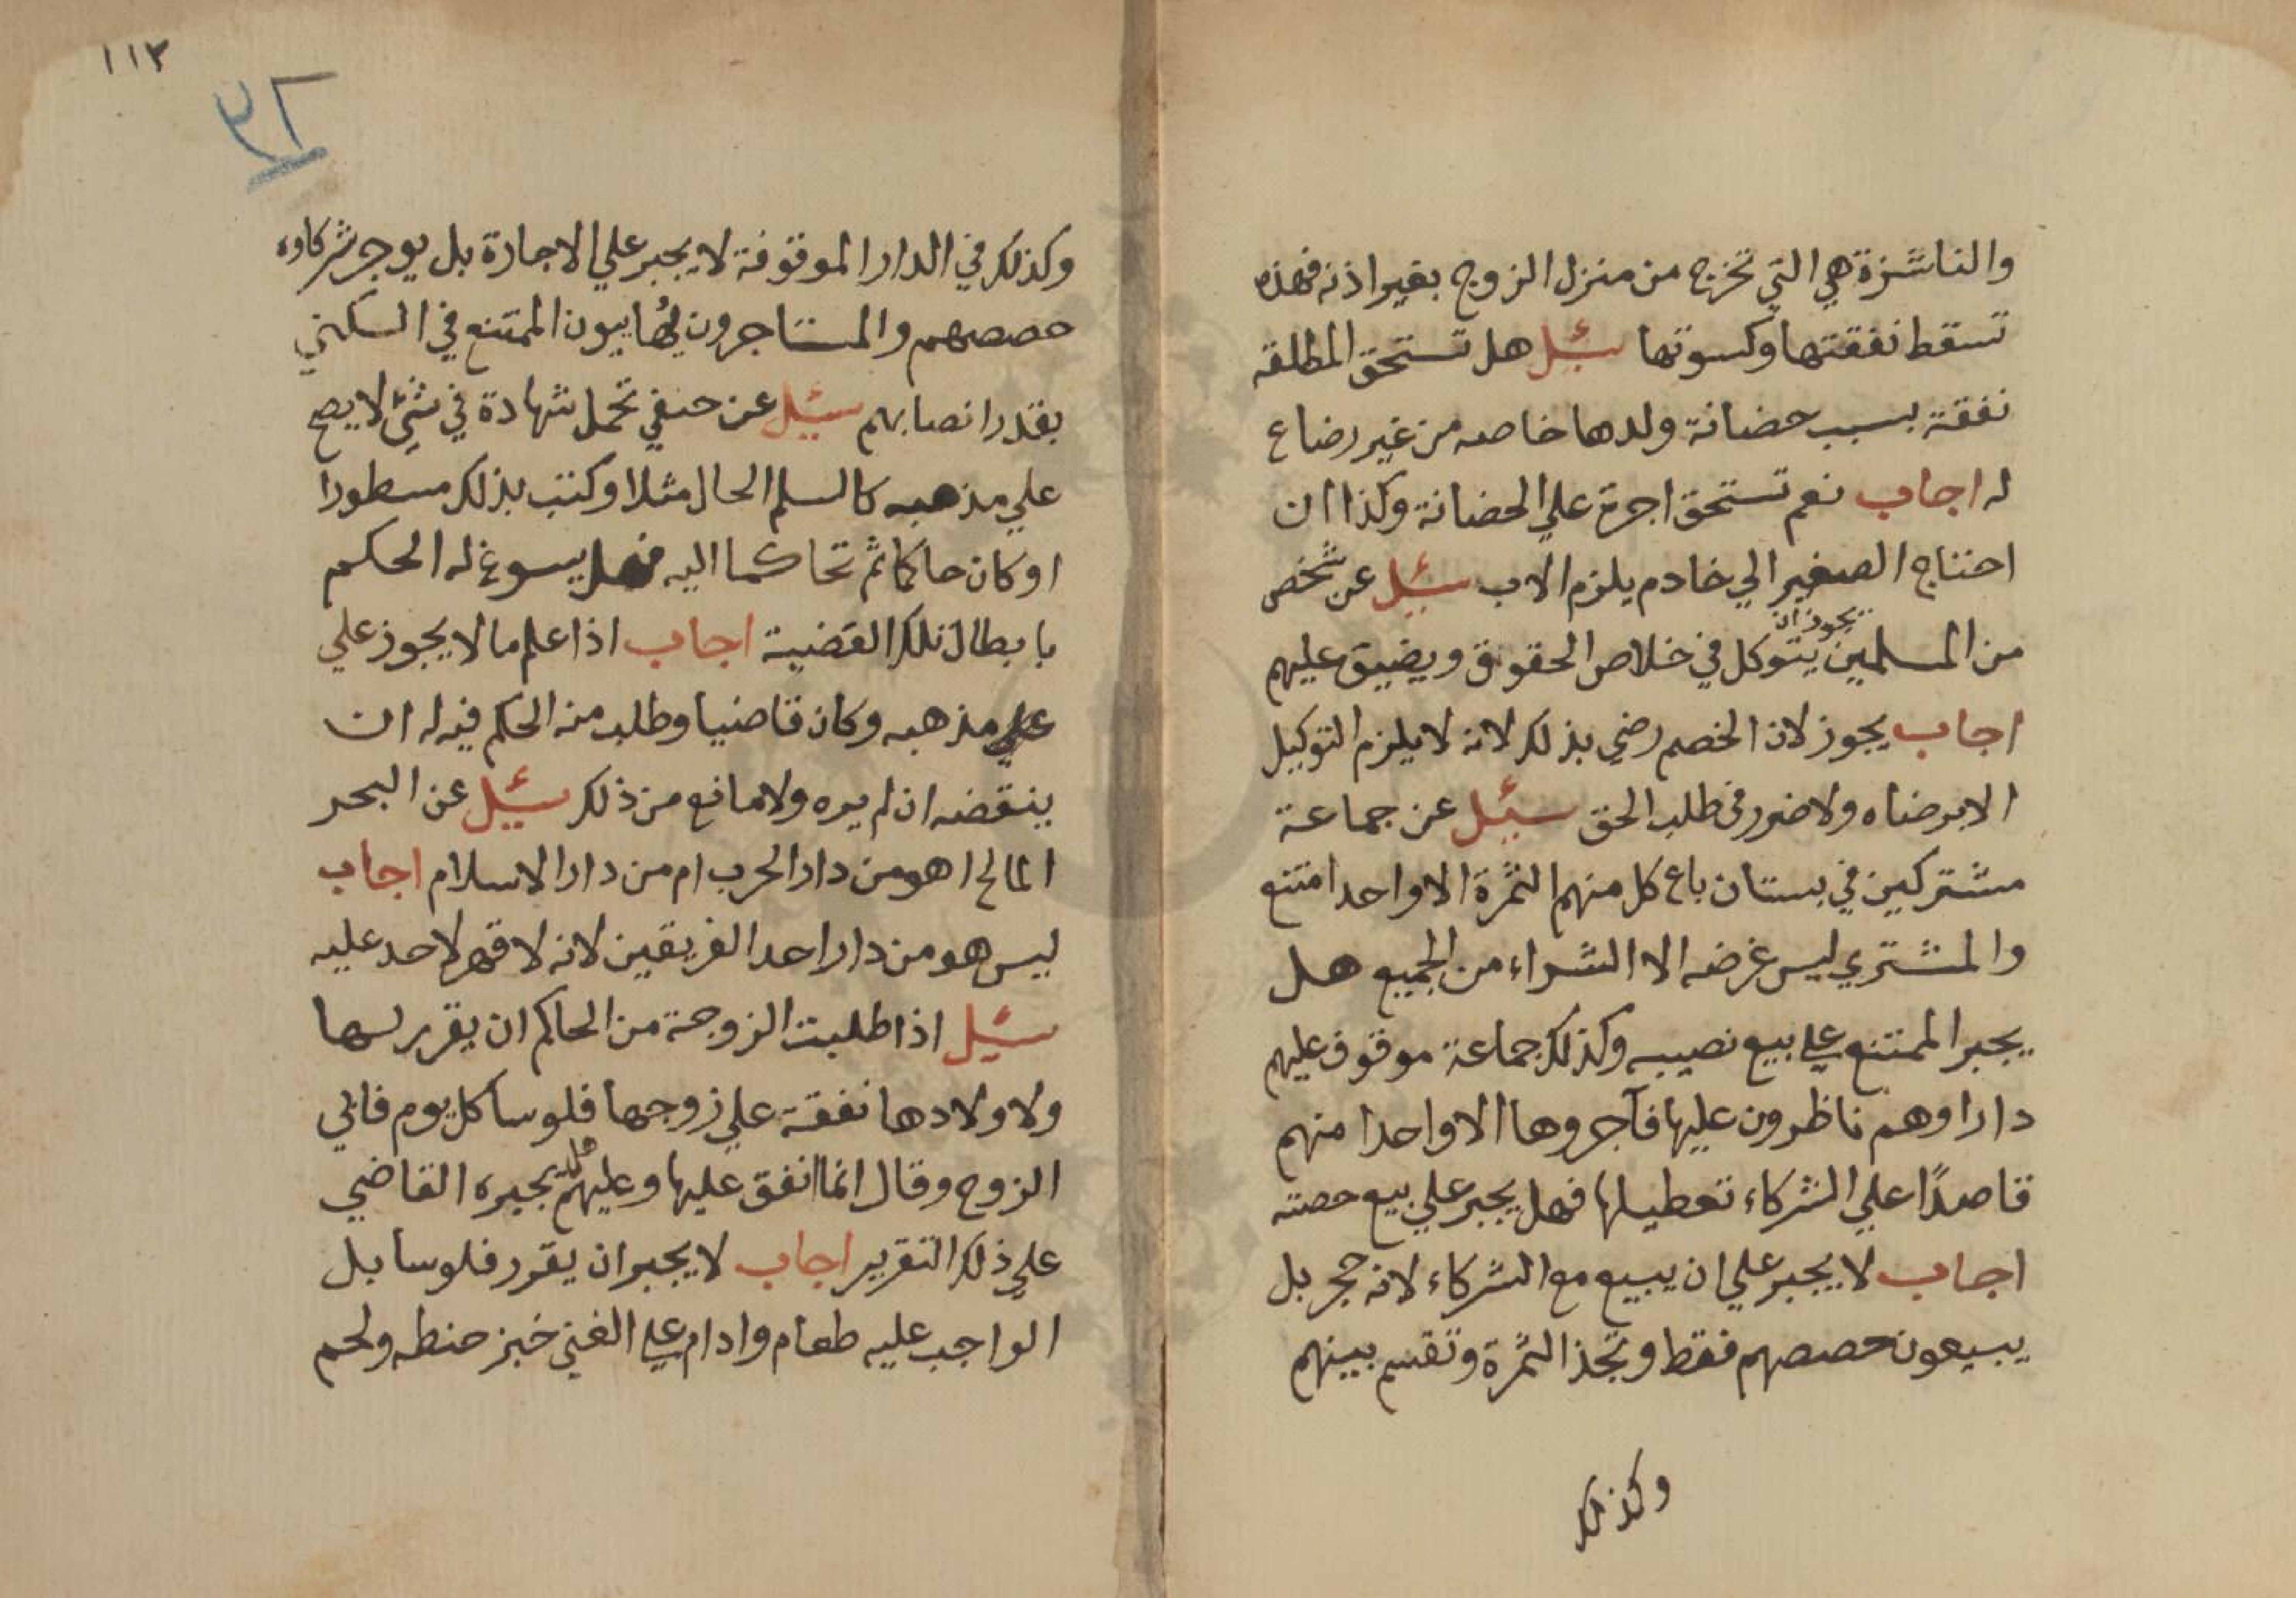 والناشزة هي التي تخرج من منزل الزوج بغير اذنه فهذه
تسقط نفقتها وكسوتها سئيل هل تستحق المطلقه
نفقة بسبب حضانة ولدها خاصه من غير رضاع
له اجاب نعم تستحق اجرة علي الحضانة وكذا ان
احتاج الصغير الي خادم يلزم الاب سئيل عن شخص
يجوز ان
من المسلمين يتوكل في خلاص الحقوق ويضيق عليهم
اجاب يجوز لان الخصم رضي بذلك لانه لا يلزم التوكيل
الا برضاه ولا ضرر في طلب الحق سئيل عن جماعة
مشتركين في بستان باع كل منهم الثمرة الا واحدا امتنع
والمشتري ليس غرضه الا الشراء من الجميع هل
يجبر الممتنع علي بيع نصيبه وكذلك جماعة موقوف عليهم
دارا وهم ناظرون عليها فآجروها الا واحدا منهم
قاصدًا علي الشركاء تعطيلها فهل يجبر علي بيع حصته
اجاب لا يجبر علي ان يبيع مع الشركاء لانه حجر بل
يبيعون حصصهم فقط وتجذ الثمرة وتقسم بينهم
وكذلك
١١٣
٣٢
وكذلك في الدار الموقوفة لا يجبر علي الاجارة بل يوجر شركاوه
حصصهم والمستاجرون يهاييون الممتنع في السكني
بقدر انصابهم سئيل عن حنفي تحمل شهادة في شئ لا يصح
علي مذهبه كالسلم الحال مثلا وكتب بذلك مسطورا
او كان حاكما ثم تحاكما اليه فهل يسوغ له الحكم
بابطال تلك القضية اجاب اذا علم ما لا يجوز علي
علي مذهبه وكان قاضيا وطلب منه الحكم فيه له ان
ينقضه ان لم يره ولا مانع من ذلك سئيل عن البحر
المالح اهو من دار الحرب ام من دار الاسلام اجاب
ليس هو من دار احد الفريقين لانه لا قهر لاحد عليه
سئيل اذا طلبت الزوجة من الحاكم ان يقرر لها
ولاولادها نفقة علي زوجها فلوسا كل يوم فابي
الزوج وقال انما انفق عليها وعليهم هل يجبره القاضي
علي ذلك التقرير اجاب لا يجبر ان يقرر فلوسا بل
الواجب عليه طعام وادام علي الغني خبز حنطه ولحم